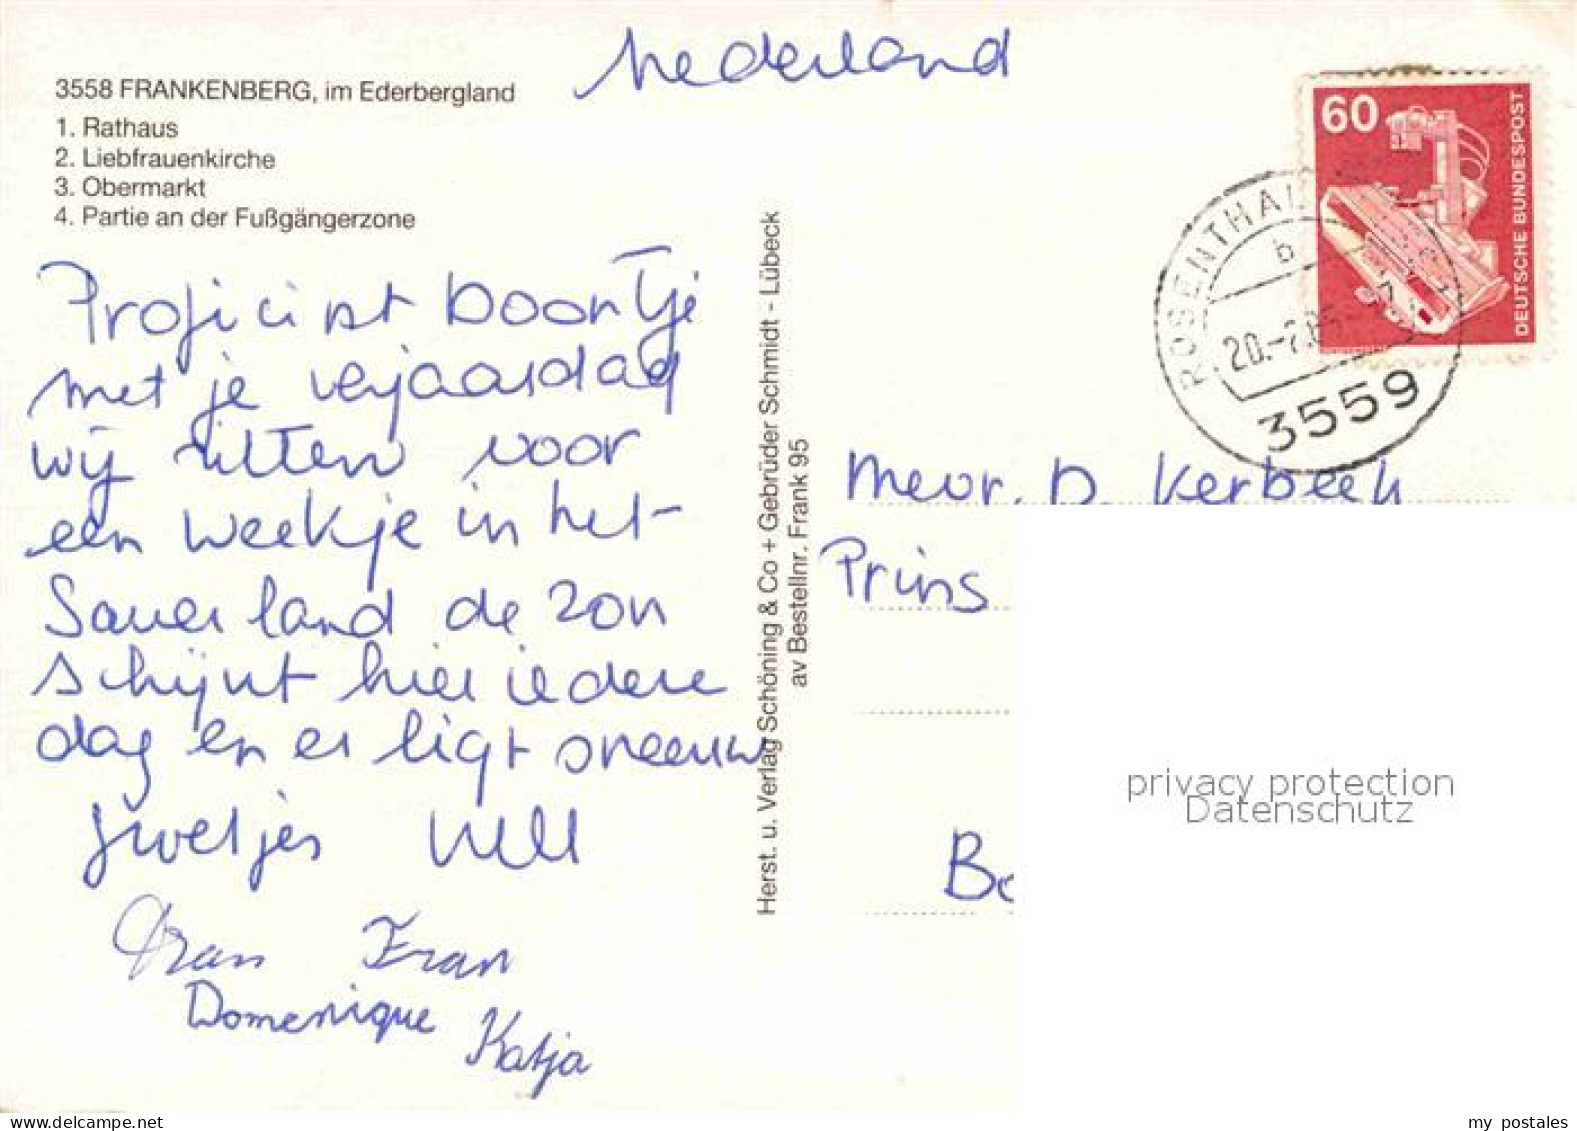 Nederland
3558 FRANKENBERG, im Ederbergland
1. Rathaus
2. Liebfrauenkirche
3. Obermarkt
4. Partie an der Fußgängerzone
60
DEUTSCHE BUNDESPOST
ROSENTHAL
b
20.-2.85
3559
Proficiat Doortje
met je verjaardag
wij zitten voor
een weekje in het
Sauerland de zon
schijnt hier iedere
dag en er ligt sneeuw
groetjes Will
Fran
Domenique
Katja
Herst. u. Verlag Schöning & Co + Gebrüder Schmidt - Lübeck
av Bestellnr. Frank 95
Mevr. D. Kerbeek
Prins
Be
privacy protection
Datenschutz
my postales